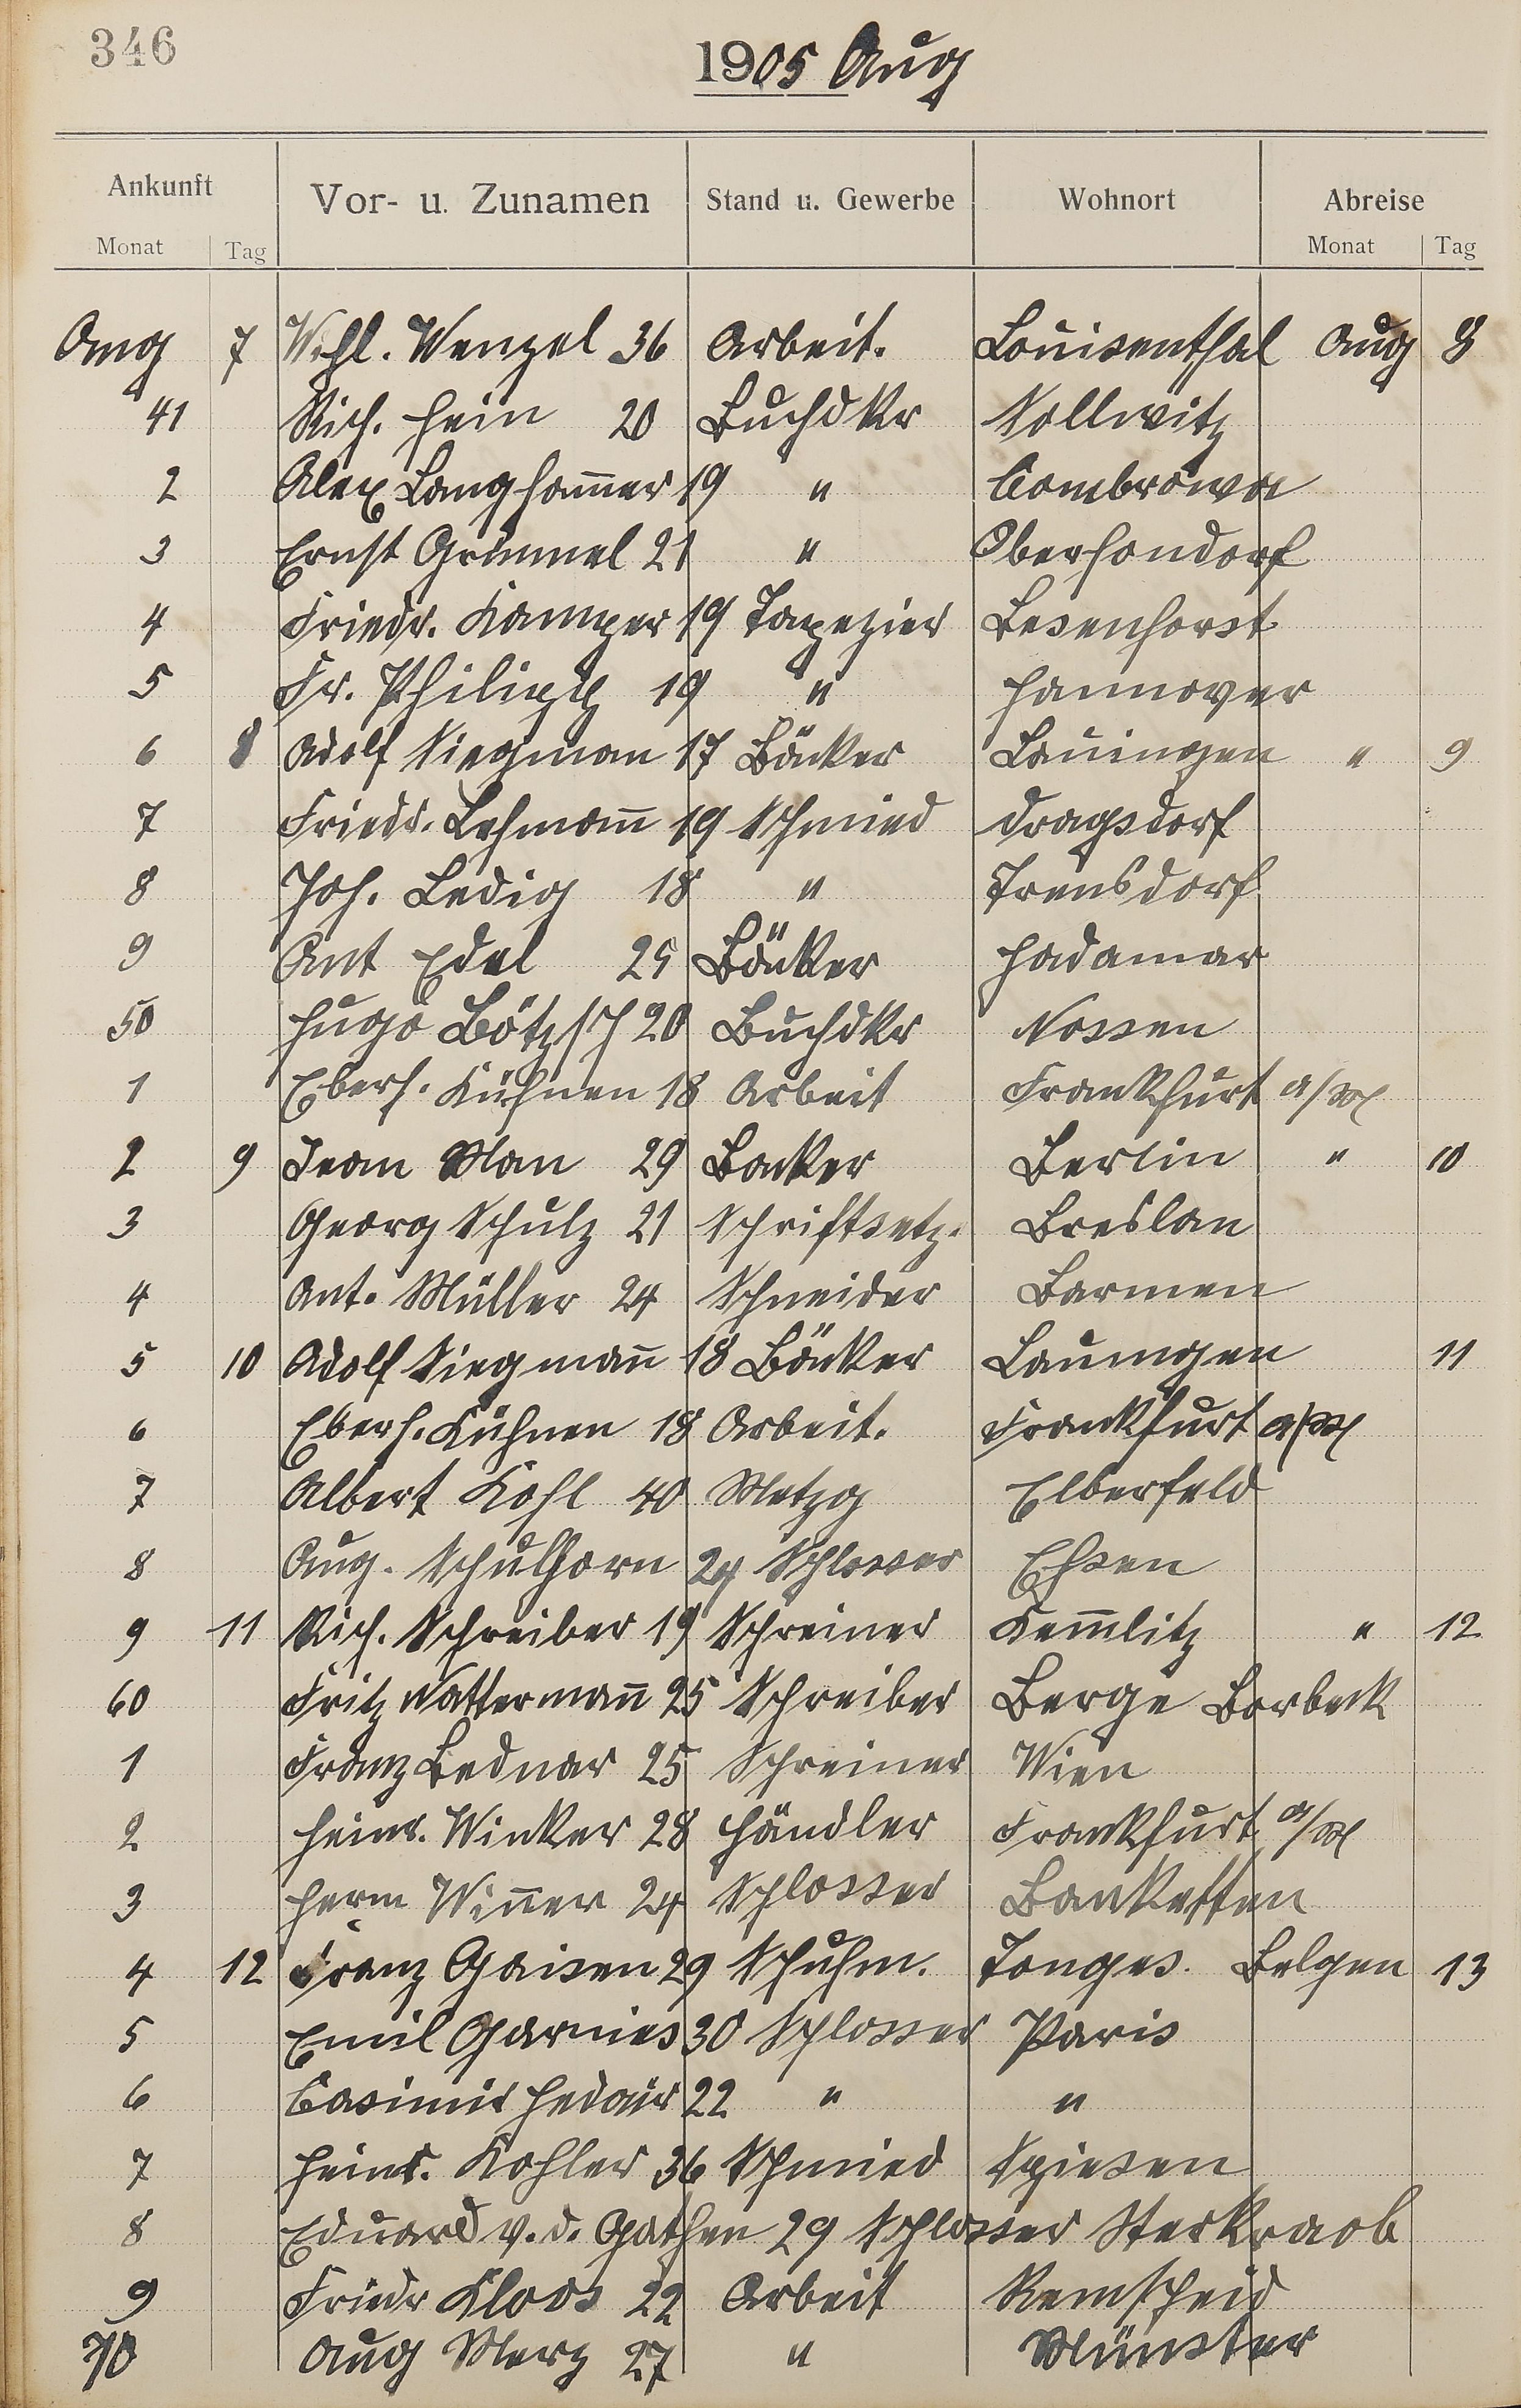 346
1905 Aug
Ankunft Vor- u. Zunamen Stand u. Gewerbe Wohnort Abreise
Monat Tag Monat Tag
Aug 7 Wihl. Wenzel 36 Arbeit. Louisenthal Aug 8
41 Rich. Hein 20 Buchdkr Nollwitz
2 Alex Langhammer 19 " Combrowa
3 Ernst Grimmel 21 " Oberhondorf
4 Friedr. Kamper 19 Tapezier Lesenhorst
5 Fr. Philipp 19 " Hannover
6 8 Adolf Siegman 17 Bäcker Lauingen " 9
7 Friedr. Lehmann 19 Schmied Dragsdorf
8 Joh. Ledig 18 " Trensdorf
9 Ant Edel 25 Bäcker Hadamar
50 Hugo Bötzsch 20 Buchdkr Nossen
1 Eberh. Kühnen 18 Arbeit Frankfurt a/M
2 9 Jean Man 29 Backer Berlin " 10
3 Georg Schulz 21 Schriftsetz. Breslau
4 Ant. Müller 24 Schneider Barmen
5 10 Adolf Siegmann 18 Bäcker Lauingen 11
6 Eberh. Kühnen 18 Arbeit. Frankfurt a/M
7 Albert Kohl 40 Metzg Elberfeld
8 Aug. Schulhorn 24 Schlosser Essen
9 11 Rich. Schreiber 19 Schreiner Kemmlitz " 12
60 Fritz Nattermann 25 Schreiber Berge Borbeck
1 Franz Bednar 25 Schreiner Wien
2 Heinr. Winker 28 Händler Frankfurt a/M
3 Herm Winner 24 Schlosser
4 12 Franz Gaisen 29 Schuhm. Tonges. Belgen 13
5 Emil Garnies 30 Schlosser Paris
6 Casimir Hedair 22 " "
7 Heinr. Kohler 36 Schmied Spiesen
8 Eduard v. d. Gathen 29 Schlosser Sterkraob
9 Friedr Kloos 22 Arbeit Remscheid
70 Aug Merz 27 " Münster